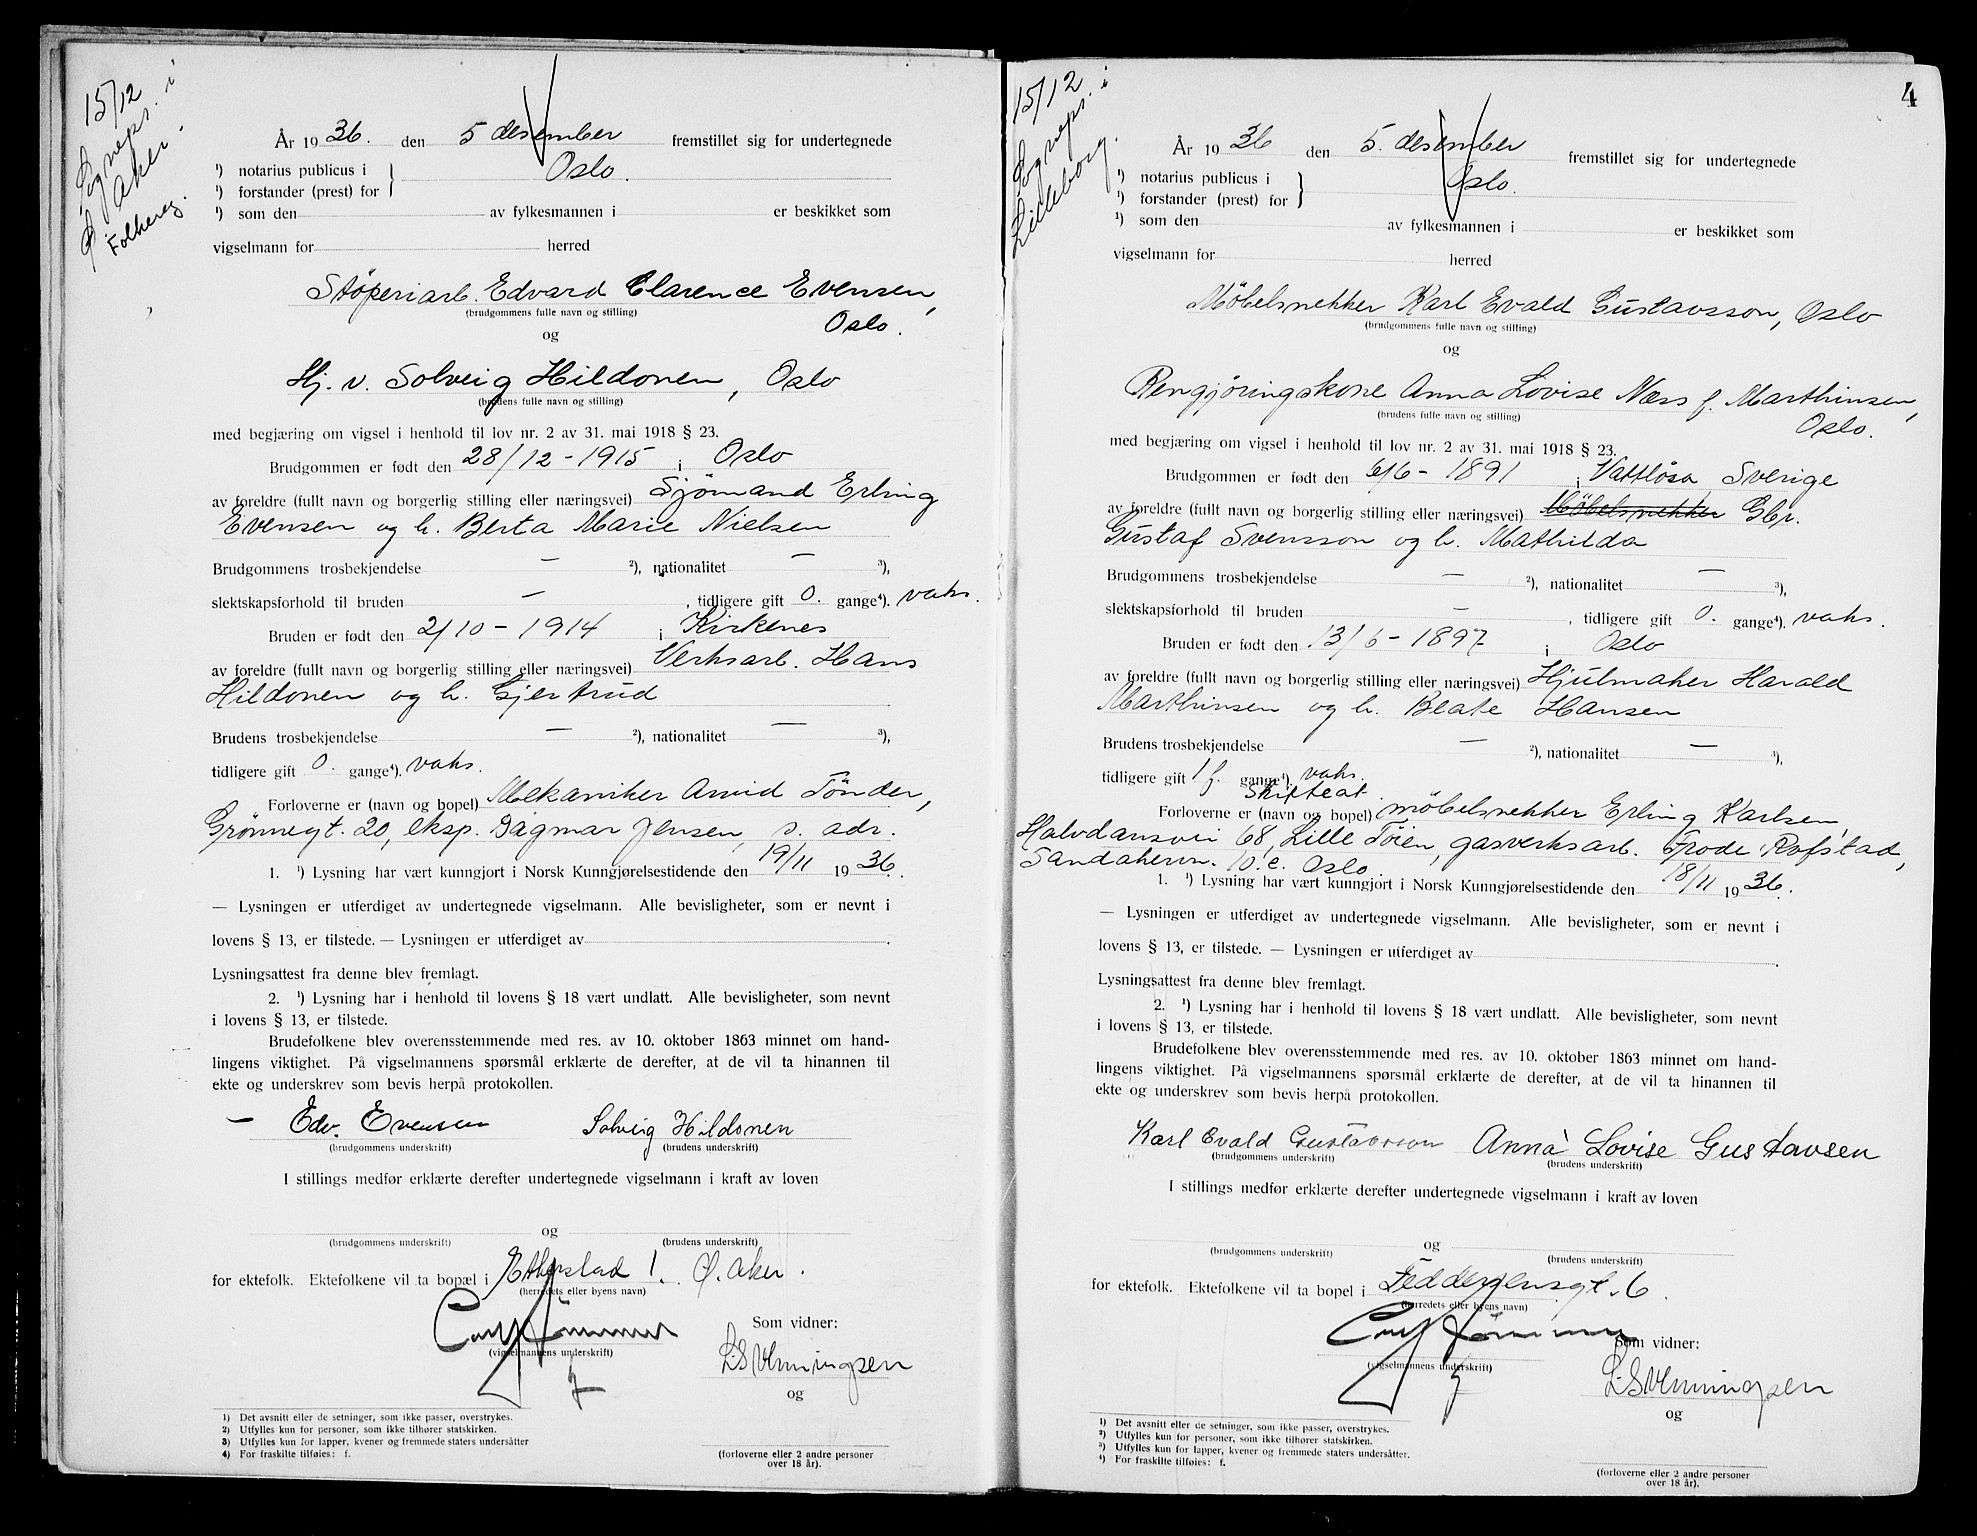 15/12
Sogneps. i
Ø. Aker.
Folkereg.
År 1936. den 5 desember fremstillet sig for undertegnede
¹) notarius publicus i
¹) forstander (prest) for } Oslo.
¹) som den av fylkesmannen i er beskikket som
vigselmann for herred
Støperiarb. Edvard Clarence Evensen,
(brudgommens fulle navn og stilling)
Oslo.
og
Hj. v. Solveig Hildonen, Oslo
(brudens fulle navn og stilling)
med begjæring om vigsel i henhold til lov nr. 2 av 31. mai 1918 § 23.
Brudgommen er født den 28/12 - 1915 i Oslo
av foreldre (fullt navn og borgerlig stilling eller næringsvei) Sjømand Erling
Evensen og h. Berta Marie Nielsen
Brudgommens trosbekjendelse — ²), nationalitet — ³),
slektskapsforhold til bruden — , tidligere gift 0. gange⁴). vaks.
Bruden er født den 2/10 - 1914 i Kirkenes
av foreldre (fullt navn og borgerlig stilling eller næringsvei) Verksarb. Hans
Hildonen og h. Gjertrud
Brudens trosbekjendelse — ²), nationalitet — ³),
tidligere gift 0. gange⁴). vaks.
Forloverne er (navn og bopel) Mekaniker Arvid Tønder,
Grønnegt. 20, eksp. Dagmar Jensen, s. adr.
1. ¹) Lysning har vært kunngjort i Norsk Kunngjørelsestidende den 19/11 1936.
— Lysningen er utferdiget av undertegnede vigselmann. Alle bevisligheter, som er nevnt i
lovens § 13, er tilstede. — Lysningen er utferdiget av
Lysningsattest fra denne blev fremlagt.
2. ¹) Lysning har i henhold til lovens § 18 vært undlatt. Alle bevisligheter, som nevnt
i lovens § 13, er tilstede.
Brudefolkene blev overensstemmende med res. av 10. oktober 1863 minnet om hand-
lingens viktighet. På vigselmannens spørsmål erklærte de derefter, at de vil ta hinannen til
ekte og underskrev som bevis herpå protokollen.
Edv. Evensen Solveig Hildonen
(brudgommens underskrift) (brudens underskrift)
I stillings medfør erklærte derefter undertegnede vigselmann i kraft av loven
og
(brudgommens underskrift) (brudens underskrift)
for ektefolk. Ektefolkene vil ta bopæl i 1. Ø. Aker.
(herredets eller byens navn)
Som vidner:
(vigselmannens underskrift)
L. S. Venningsen
og
¹) Det avsnitt eller de setninger, som ikke passer, overstrykes.
²) Utfylles kun for personer, som ikke tilhører statskirken.
³) Utfylles kun for lapper, kvener og fremmede staters undersåtter
⁴) For fraskilte tilføies: f.
(forloverne eller 2 andre personer
over 18 år).
4
15/12
Sogneps. i
Lilleborg.
År 1936 den 5. desember fremstillet sig for undertegnede
¹) notarius publicus i
¹) forstander (prest) for } Oslo.
¹) som den av fylkesmannen i er beskikket som
vigselmann for herred
Møbelsnekker Karl Evald Gustavsson, Oslo
(brudgommens fulle navn og stilling)
og
Rengjøringskone Anna Lovise Næss f. Marthinsen,
(brudens fulle navn og stilling)
Oslo.
med begjæring om vigsel i henhold til lov nr. 2 av 31. mai 1918 § 23.
Brudgommen er født den 6/6 - 1891 i Vättlösa, Sverige
av foreldre (fullt navn og borgerlig stilling eller næringsvei) Møbelsnekker Gbr.
Gustaf Svensson og h. Mathilda
Brudgommens trosbekjendelse — ²), nationalitet — ³),
slektskapsforhold til bruden — , tidligere gift 0. gange⁴). vaks.
Bruden er født den 13/6 - 1897 i Oslo
av foreldre (fullt navn og borgerlig stilling eller næringsvei) Hjulmaker Harald
Marthinsen og h. Beate Hansen
Brudens trosbekjendelse — ²), nationalitet — ³),
tidligere gift 1 f. gange⁴). vaks.
Skifteat.
Forloverne er (navn og bopel) møbelsnekker Erling Karlsen,
Halvdansvei 68, Lille Tøien, gasverksarb. Frode Rofstad,
Sandakervn. 10.c. Oslo
1. ¹) Lysning har vært kunngjort i Norsk Kunngjørelsestidende den 18/11 1936.
— Lysningen er utferdiget av undertegnede vigselmann. Alle bevisligheter, som er nevnt i
lovens § 13, er tilstede. — Lysningen er utferdiget av
Lysningsattest fra denne blev fremlagt.
2. ¹) Lysning har i henhold til lovens § 18 vært undlatt. Alle bevisligheter, som nevnt
i lovens § 13, er tilstede.
Brudefolkene blev overensstemmende med res. av 10. oktober 1863 minnet om hand-
lingens viktighet. På vigselmannens spørsmål erklærte de derefter, at de vil ta hinannen til
ekte og underskrev som bevis herpå protokollen.
Karl Evald Gustavsson Anna Lovise Gustavsen
(brudgommens underskrift) (brudens underskrift)
I stillings medfør erklærte derefter undertegnede vigselmann i kraft av loven
og
(brudgommens underskrift) (brudens underskrift)
for ektefolk. Ektefolkene vil ta bopel i Feddersensgt. 6.
(herredets eller byens navn)
Som vidner:
(vigselmannens underskrift)
L. S. Venningsen
og
¹) Det avsnitt eller de setninger, som ikke passer, overstrykes.
²) Utfylles kun for personer, som ikke tilhører statskirken.
³) Utfylles kun for lapper, kvener og fremmede staters undersåtter.
⁴) For fraskilte tilføies: f.
(forloverne eller 2 andre personer
over 18 år).